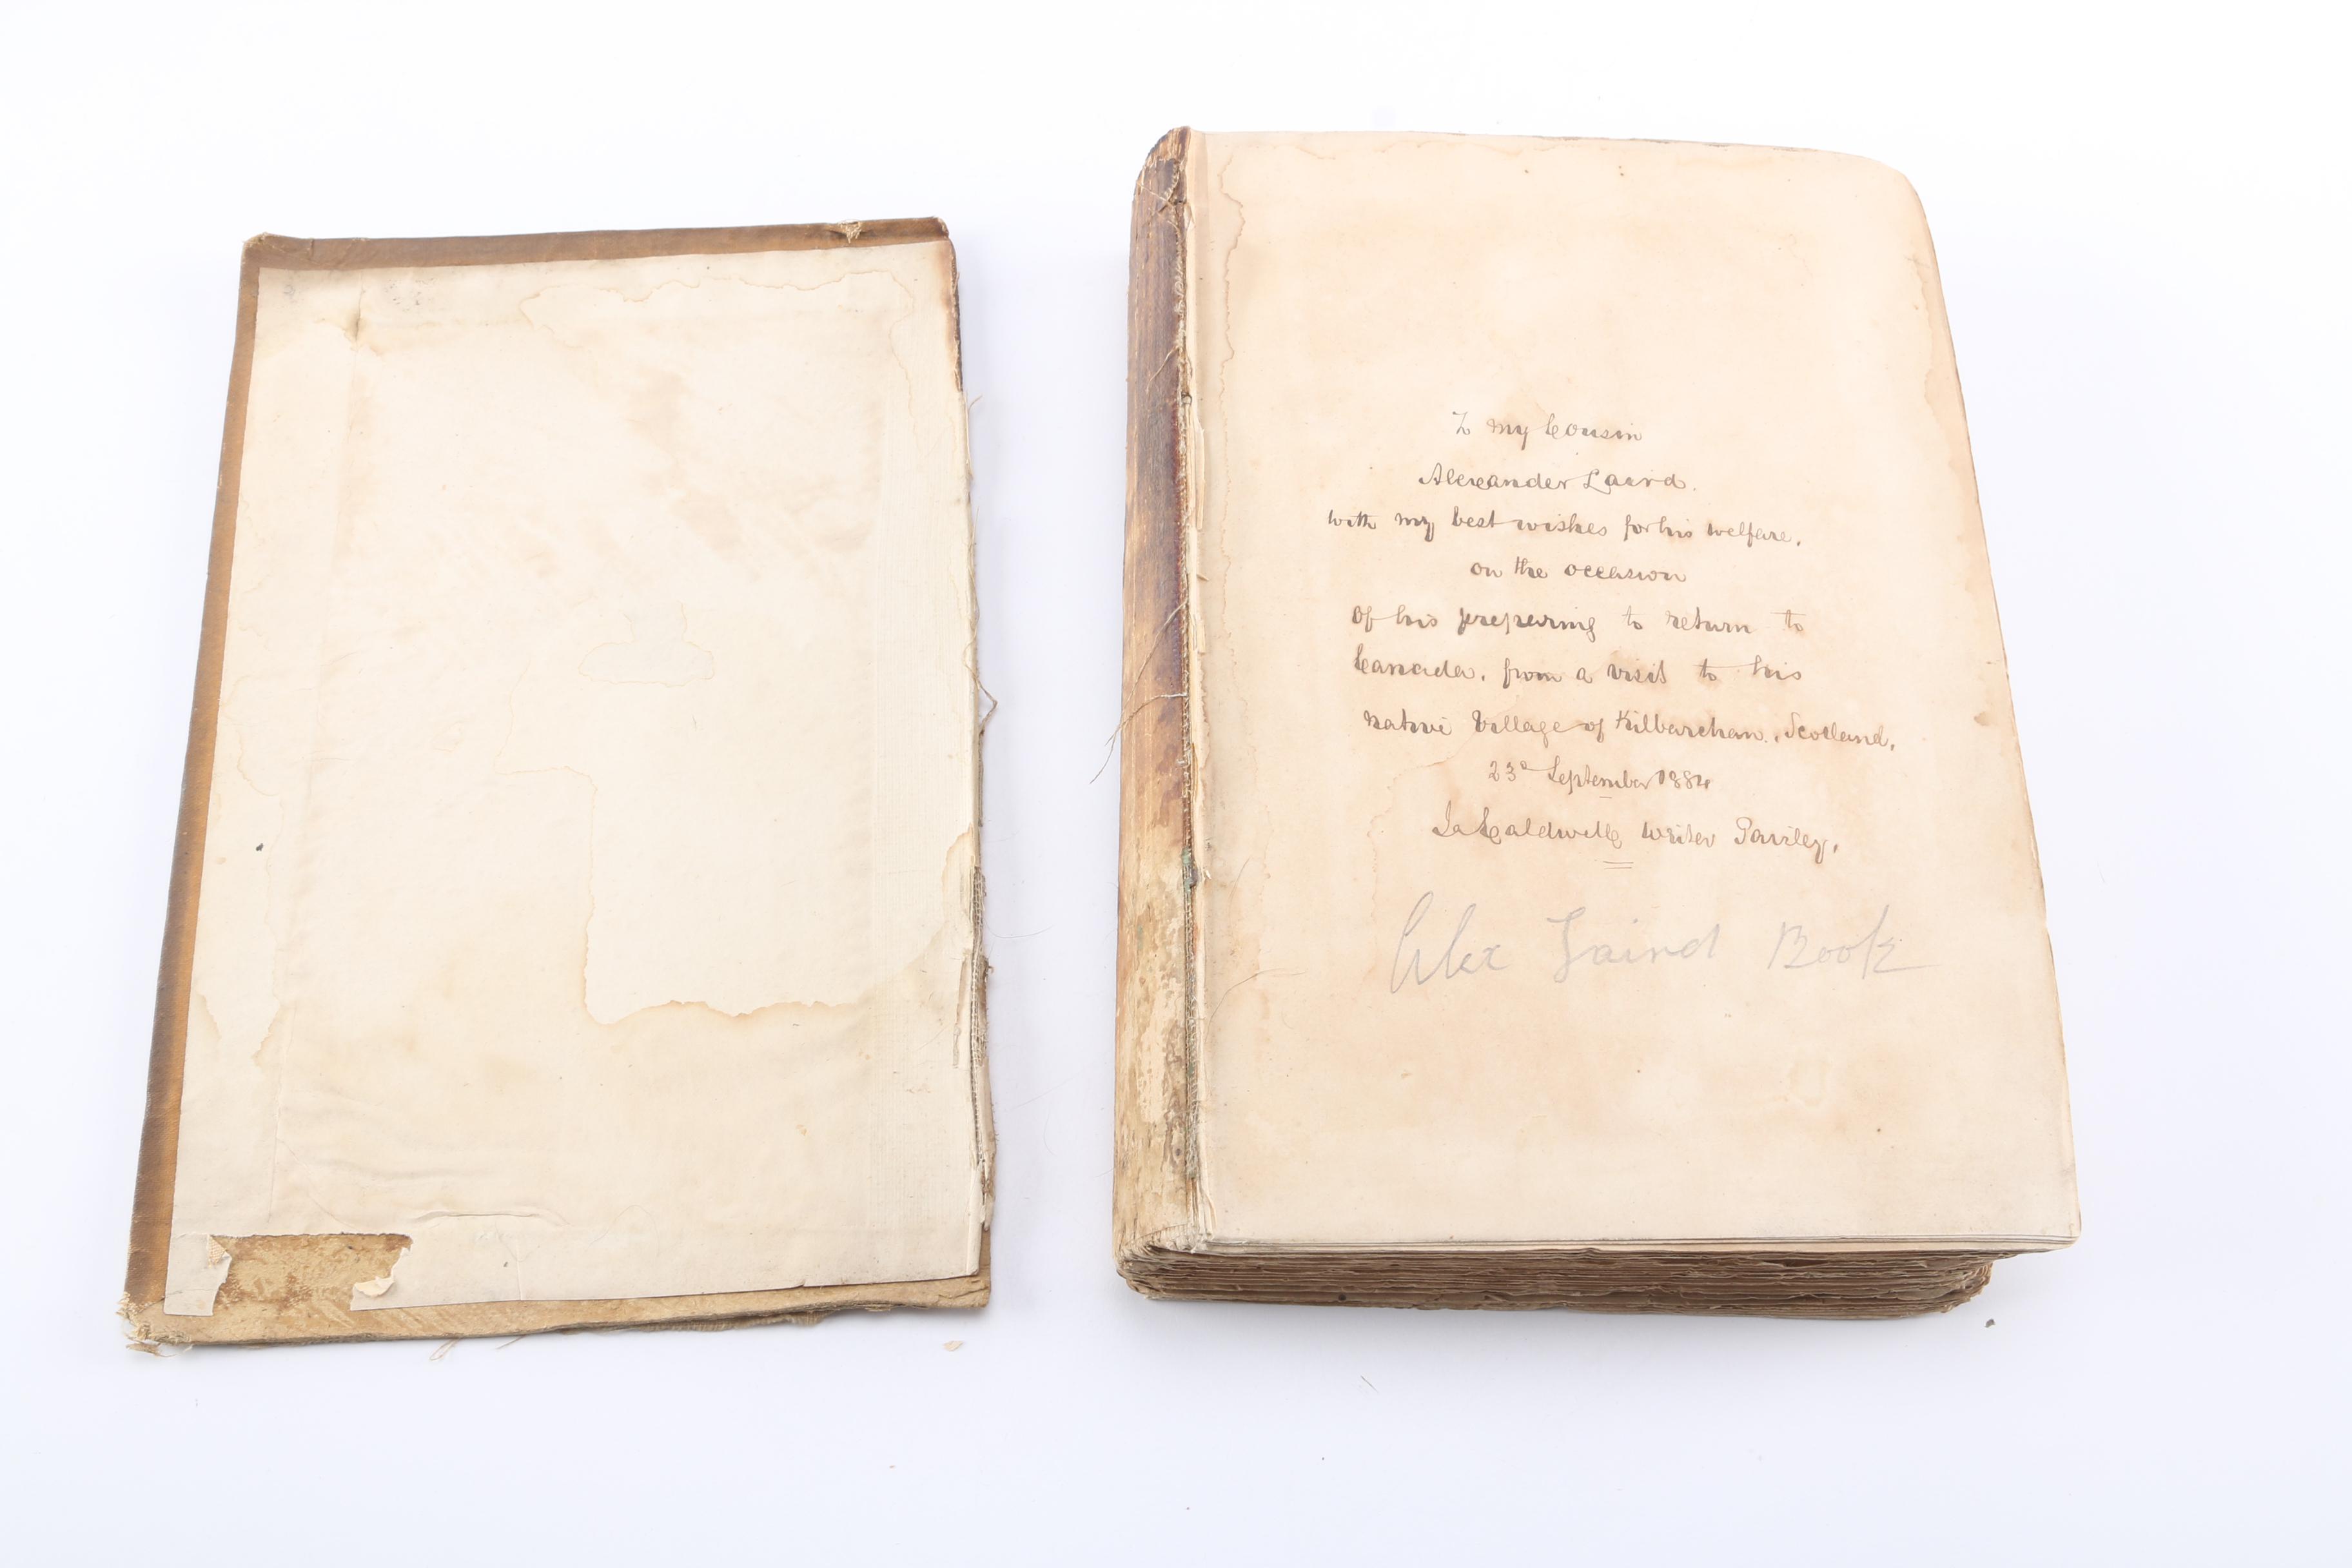 To my Cousin
Alexander Laird.
with my best wishes for his welfare,
on the occasion
of his preparing to return to
Canada, from a visit to his
native Village of Kilbarchan, Scotland,
23d September 1884
Ja Caldwell Writer Paisley,
Alex Laird Book